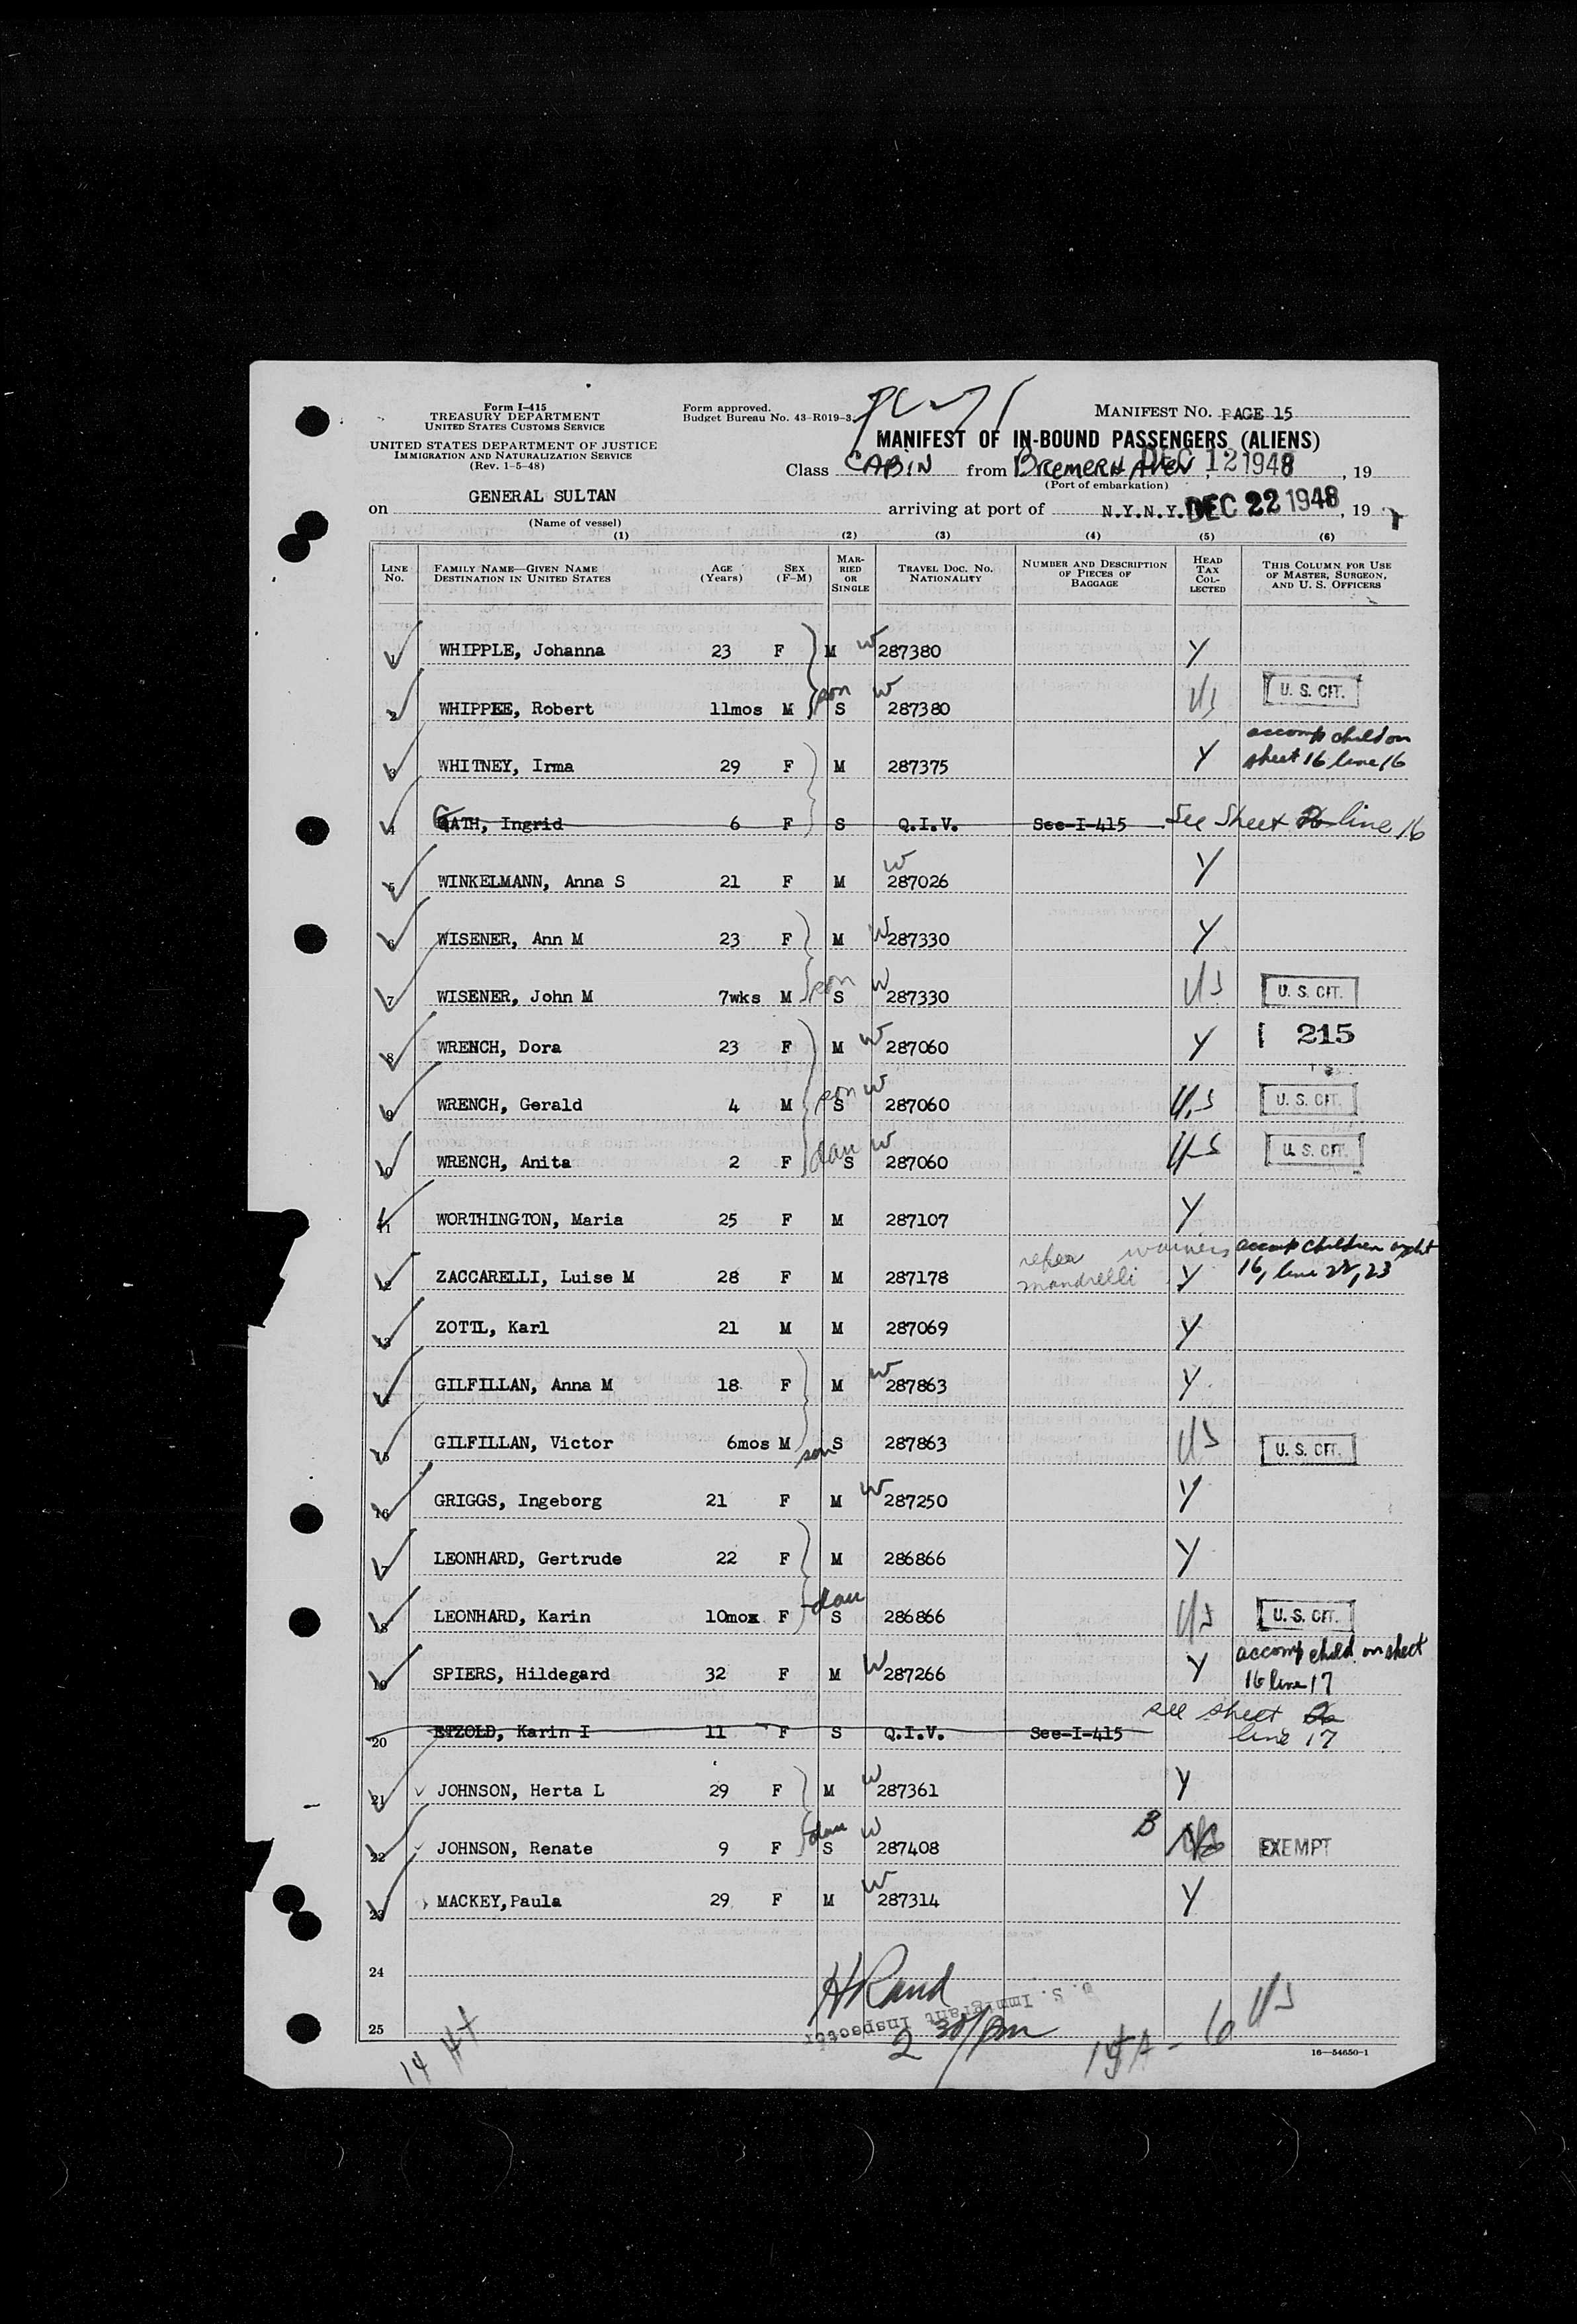 Form I-415
TREASURY DEPARTMENT
UNITED STATES CUSTOMS SERVICE
UNITED STATES DEPARTMENT OF JUSTICE
IMMIGRATION AND NATURALIZATION SERVICE
(Rev. 1-5-48)
Form approved.
Budget Bureau No. 43-R019-3.
MANIFEST NO. PAGE 15
MANIFEST OF IN-BOUND PASSENGERS (ALIENS)
Class CABIN from BREMERHAVEN, DEC 12 1948, 19
(Port of embarkation)
on GENERAL SULTAN arriving at port of N.Y.N.Y. DEC 22 1948, 19
(Name of vessel)
(1) (2) (3) (4) (5) (6)
LINE No. FAMILY NAME—GIVEN NAME DESTINATION IN UNITED STATES AGE (Years) SEX (F-M) MARRIED OR SINGLE TRAVEL DOC. NO. NATIONALITY NUMBER AND DESCRIPTION OF PIECES OF BAGGAGE HEAD TAX COLLECTED THIS COLUMN FOR USE OF MASTER, SURGEON, AND U. S. OFFICERS
1 WHIPPLE, Johanna 23 F M W 287380 Y
2 WHIPPLE, Robert 11mos M son S W 287380 US U. S. CIT.
accomp child on
3 WHITNEY, Irma 29 F M 287375 Y sheet 16 line 16
4 GATH, Ingrid 6 F S Q.I.V. See-I-415 See Sheet line 16
5 WINKELMANN, Anna S 21 F M W 287026 Y
6 WISENER, Ann M 23 F M W 287330 Y
7 WISENER, John M 7wks M son S W 287330 US U. S. CIT.
8 WRENCH, Dora 23 F M W 287060 Y 215
9 WRENCH, Gerald 4 M son S W 287060 U.S U. S. CIT.
10 WRENCH, Anita 2 F dau S W 287060 US U. S. CIT.
11 WORTHINGTON, Maria 25 F M 287107 Y
refer accomp children
12 ZACCARELLI, Luise M 28 F M 287178 mandrelli Y 16, line 22, 23
13 ZOTTL, Karl 21 M M 287069 Y
14 GILFILLAN, Anna M 18 F M W 287863 Y
15 GILFILLAN, Victor 6mos M son S 287863 US U. S. CIT.
16 GRIGGS, Ingeborg 21 F M W 287250 Y
17 LEONHARD, Gertrude 22 F M 286866 Y
18 LEONHARD, Karin 10mox F dau S 286866 US U. S. CIT.
accomp child on sheet
19 SPIERS, Hildegard 32 F M W 287266 Y 16 line 17
see sheet
20 ETZOLD, Karin I 11 F S Q.I.V. See-I-415 line 17
21 JOHNSON, Herta L 29 F M W 287361 Y
22 JOHNSON, Renate 9 F dau S W 287408 B EXEMPT
23 MACKEY, Paula 29 F M W 287314 Y
24
H Rand
U. S. Immigrant Inspector
25
2 30/pm
14
6 US
16—54650-1